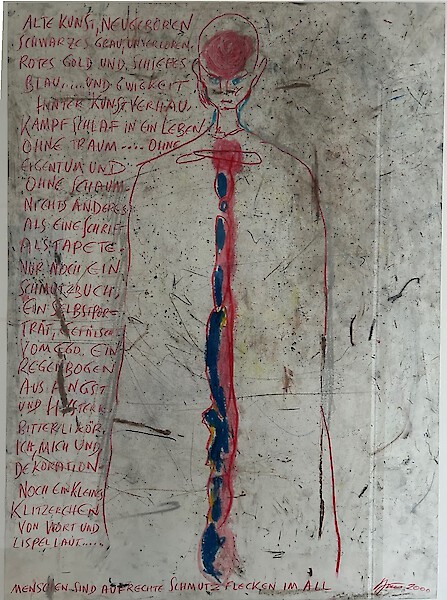 ALTE KUNST, NEUGEBOREN
SCHWARZES GRAU, UNVERLOREN.
ROTES GOLD UND SCHIEFES
BLAU..... UND EWIGKEIT
HINTER KUNSTVERHAU.
KAMPF SCHLAF IN EIN LEBEN
OHNE TRAUM .... OHNE
EIGENTUM UND
OHNE SCHAUM
NICHTS ANDERES
ALS EINE SCHRIF
ALS TAPETE.
NUR NOCH EIN
SCHMUTZBUCH,
EIN SELBSTPOR-
TRÄT,
VOM EGO. EIN
REGENBOGEN
AUS ANGST
UND
BITTERLIKÖR,
ICH, MICH UND
DEKORATION
NOCH EIN KLEINES
KLITZERCHEN
VON WORT UND
LISPELLAUT.....
MENSCHEN SIND AUFRECHTE SCHMUTZFLECKEN IM ALL
2000